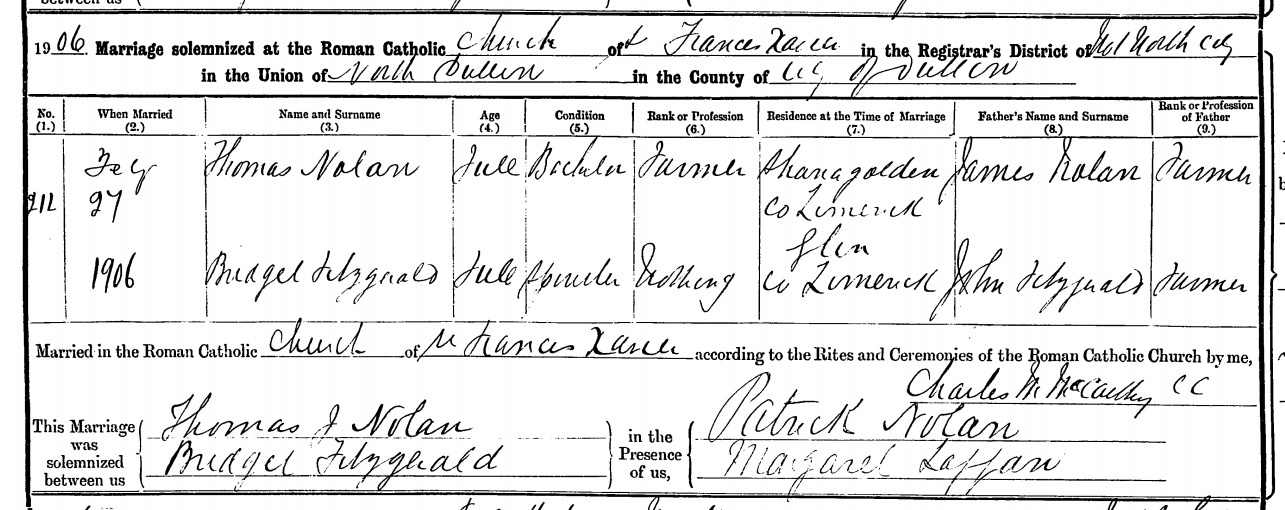 between us
1906. Marriage solemnized at the Roman Catholic Church of St Francis Xavier in the Registrar's District of No 1 North City
in the Union of North Dublin in the County of City of Dublin
No. (1.) When Married (2.) Name and Surname (3.) Age (4.) Condition (5.) Rank or Profession (6.) Residence at the Time of Marriage (7.) Father's Name and Surname (8.) Rank or Profession of Father (9.)
212 Feby 27 Thomas Nolan Full Bachelor Farmer Shanagolden Co Limerick James Nolan Farmer
1906 Bridget Fitzgerald Full Spinster Nothing Glin Co Limerick John Fitzgerald Farmer
Married in the Roman Catholic Church of St Francis Xavier according to the Rites and Ceremonies of the Roman Catholic Church by me,
Charles M McCarthy CC
This Marriage was solemnized between us
Thomas J Nolan
Bridget Fitzgerald
in the Presence of us,
Patrick Nolan
Margaret Laffan